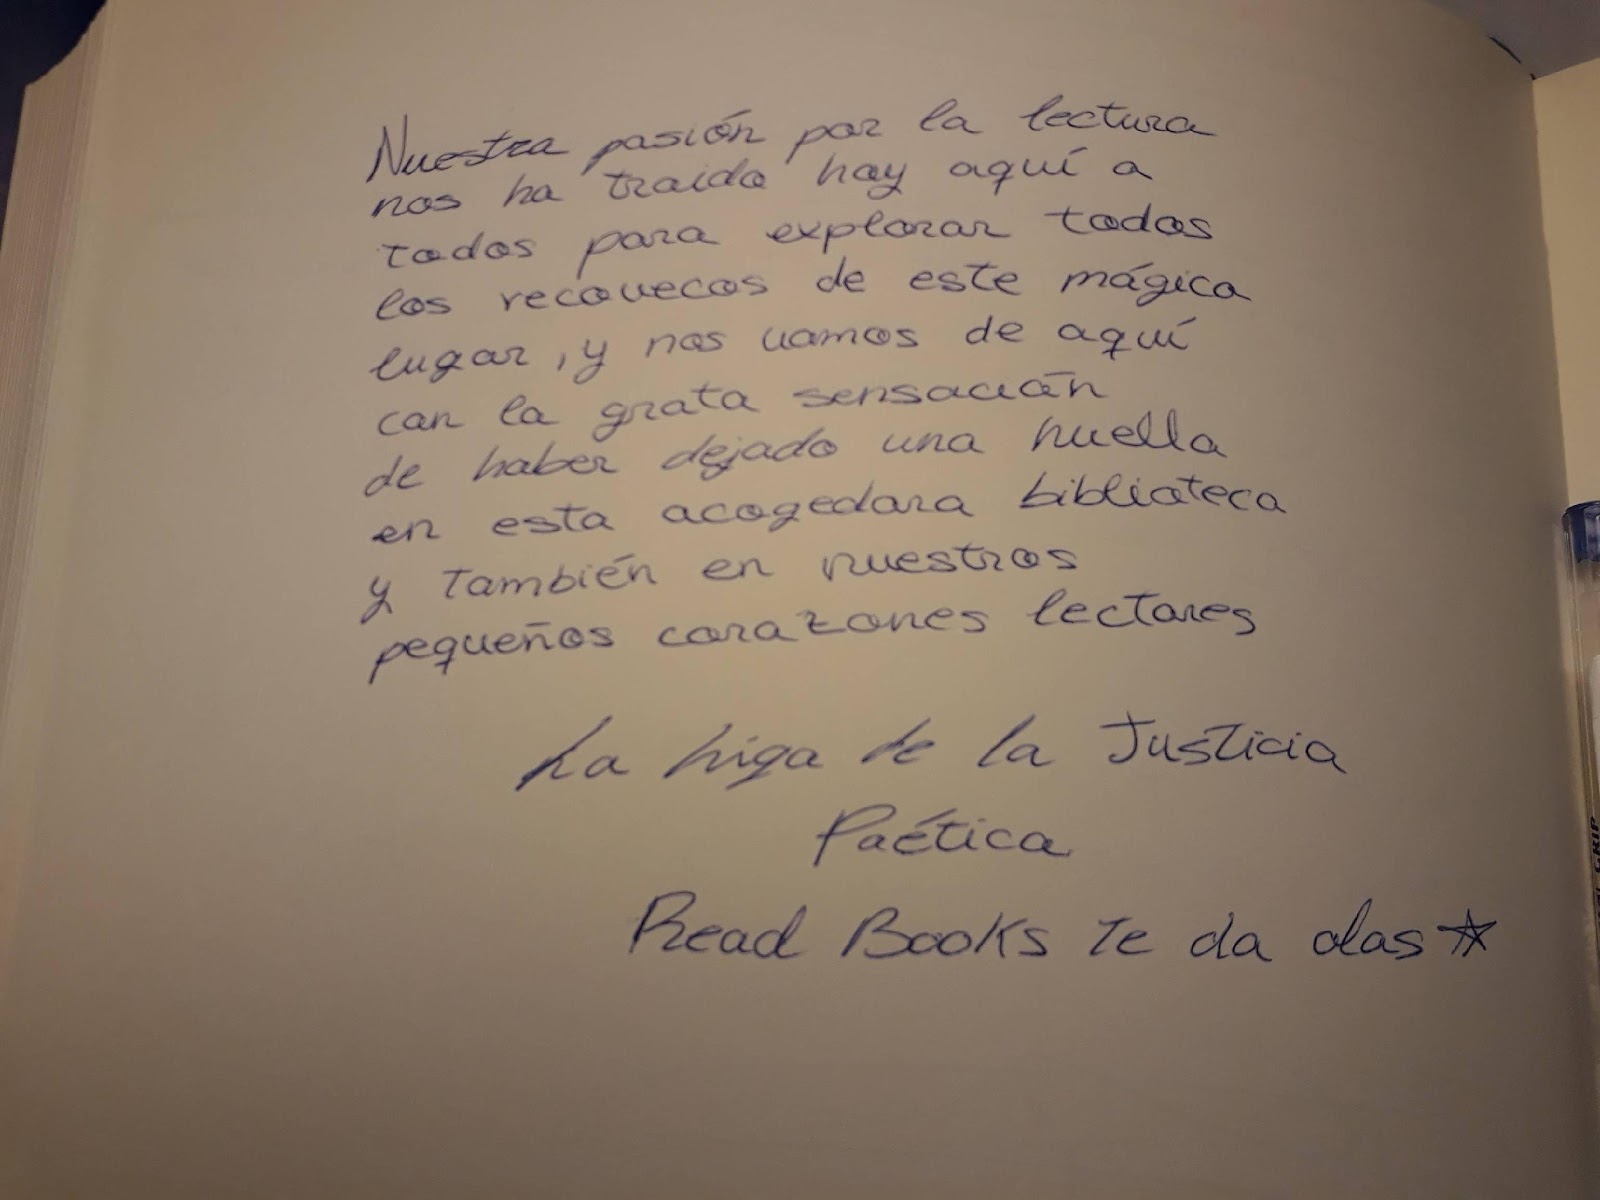 Nuestra pasión por la lectura
nos ha traido hoy aquí a
todos para explorar todos
los recovecos de este mágico
lugar, y nos vamos de aquí
con la grata sensación
de haber dejado una huella
en esta acogedora biblioteca
y también en nuestros
pequeños corazones lectores
La Liga de la Justicia
Poética
Read Books te da alas